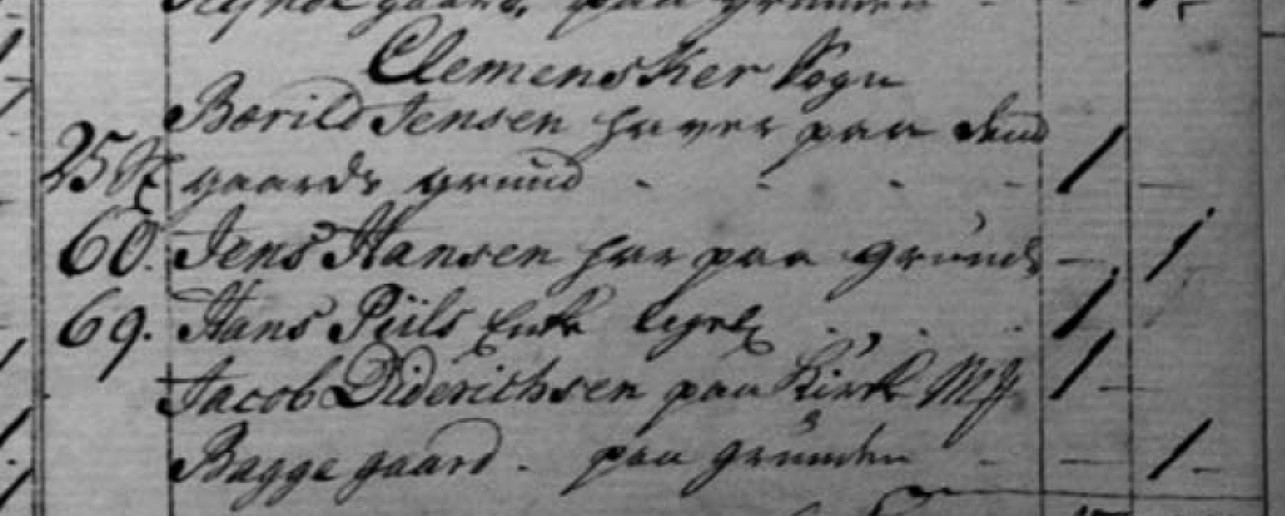 gaard, paa grunden
Clemensker Sogn
Boerild Jensen haver paa
25 gaards grund 1
60. Jens Hansen har paa grund 1
69. Hans Piils Enke ligel 1
Jacob Diderichsen paa Kirk 1
Baggegaard. paa grunden 1